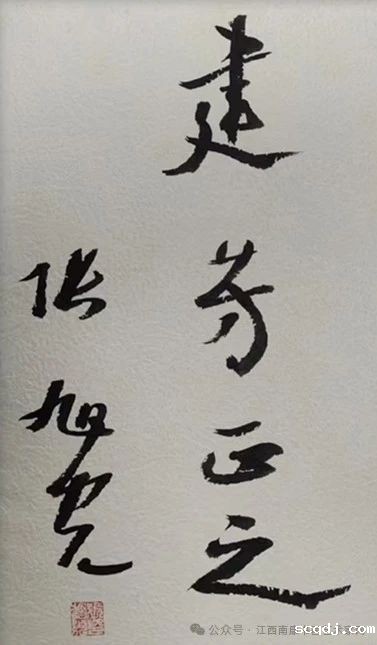 建芳正之
张旭光
公众号·江西南
scqdj.com